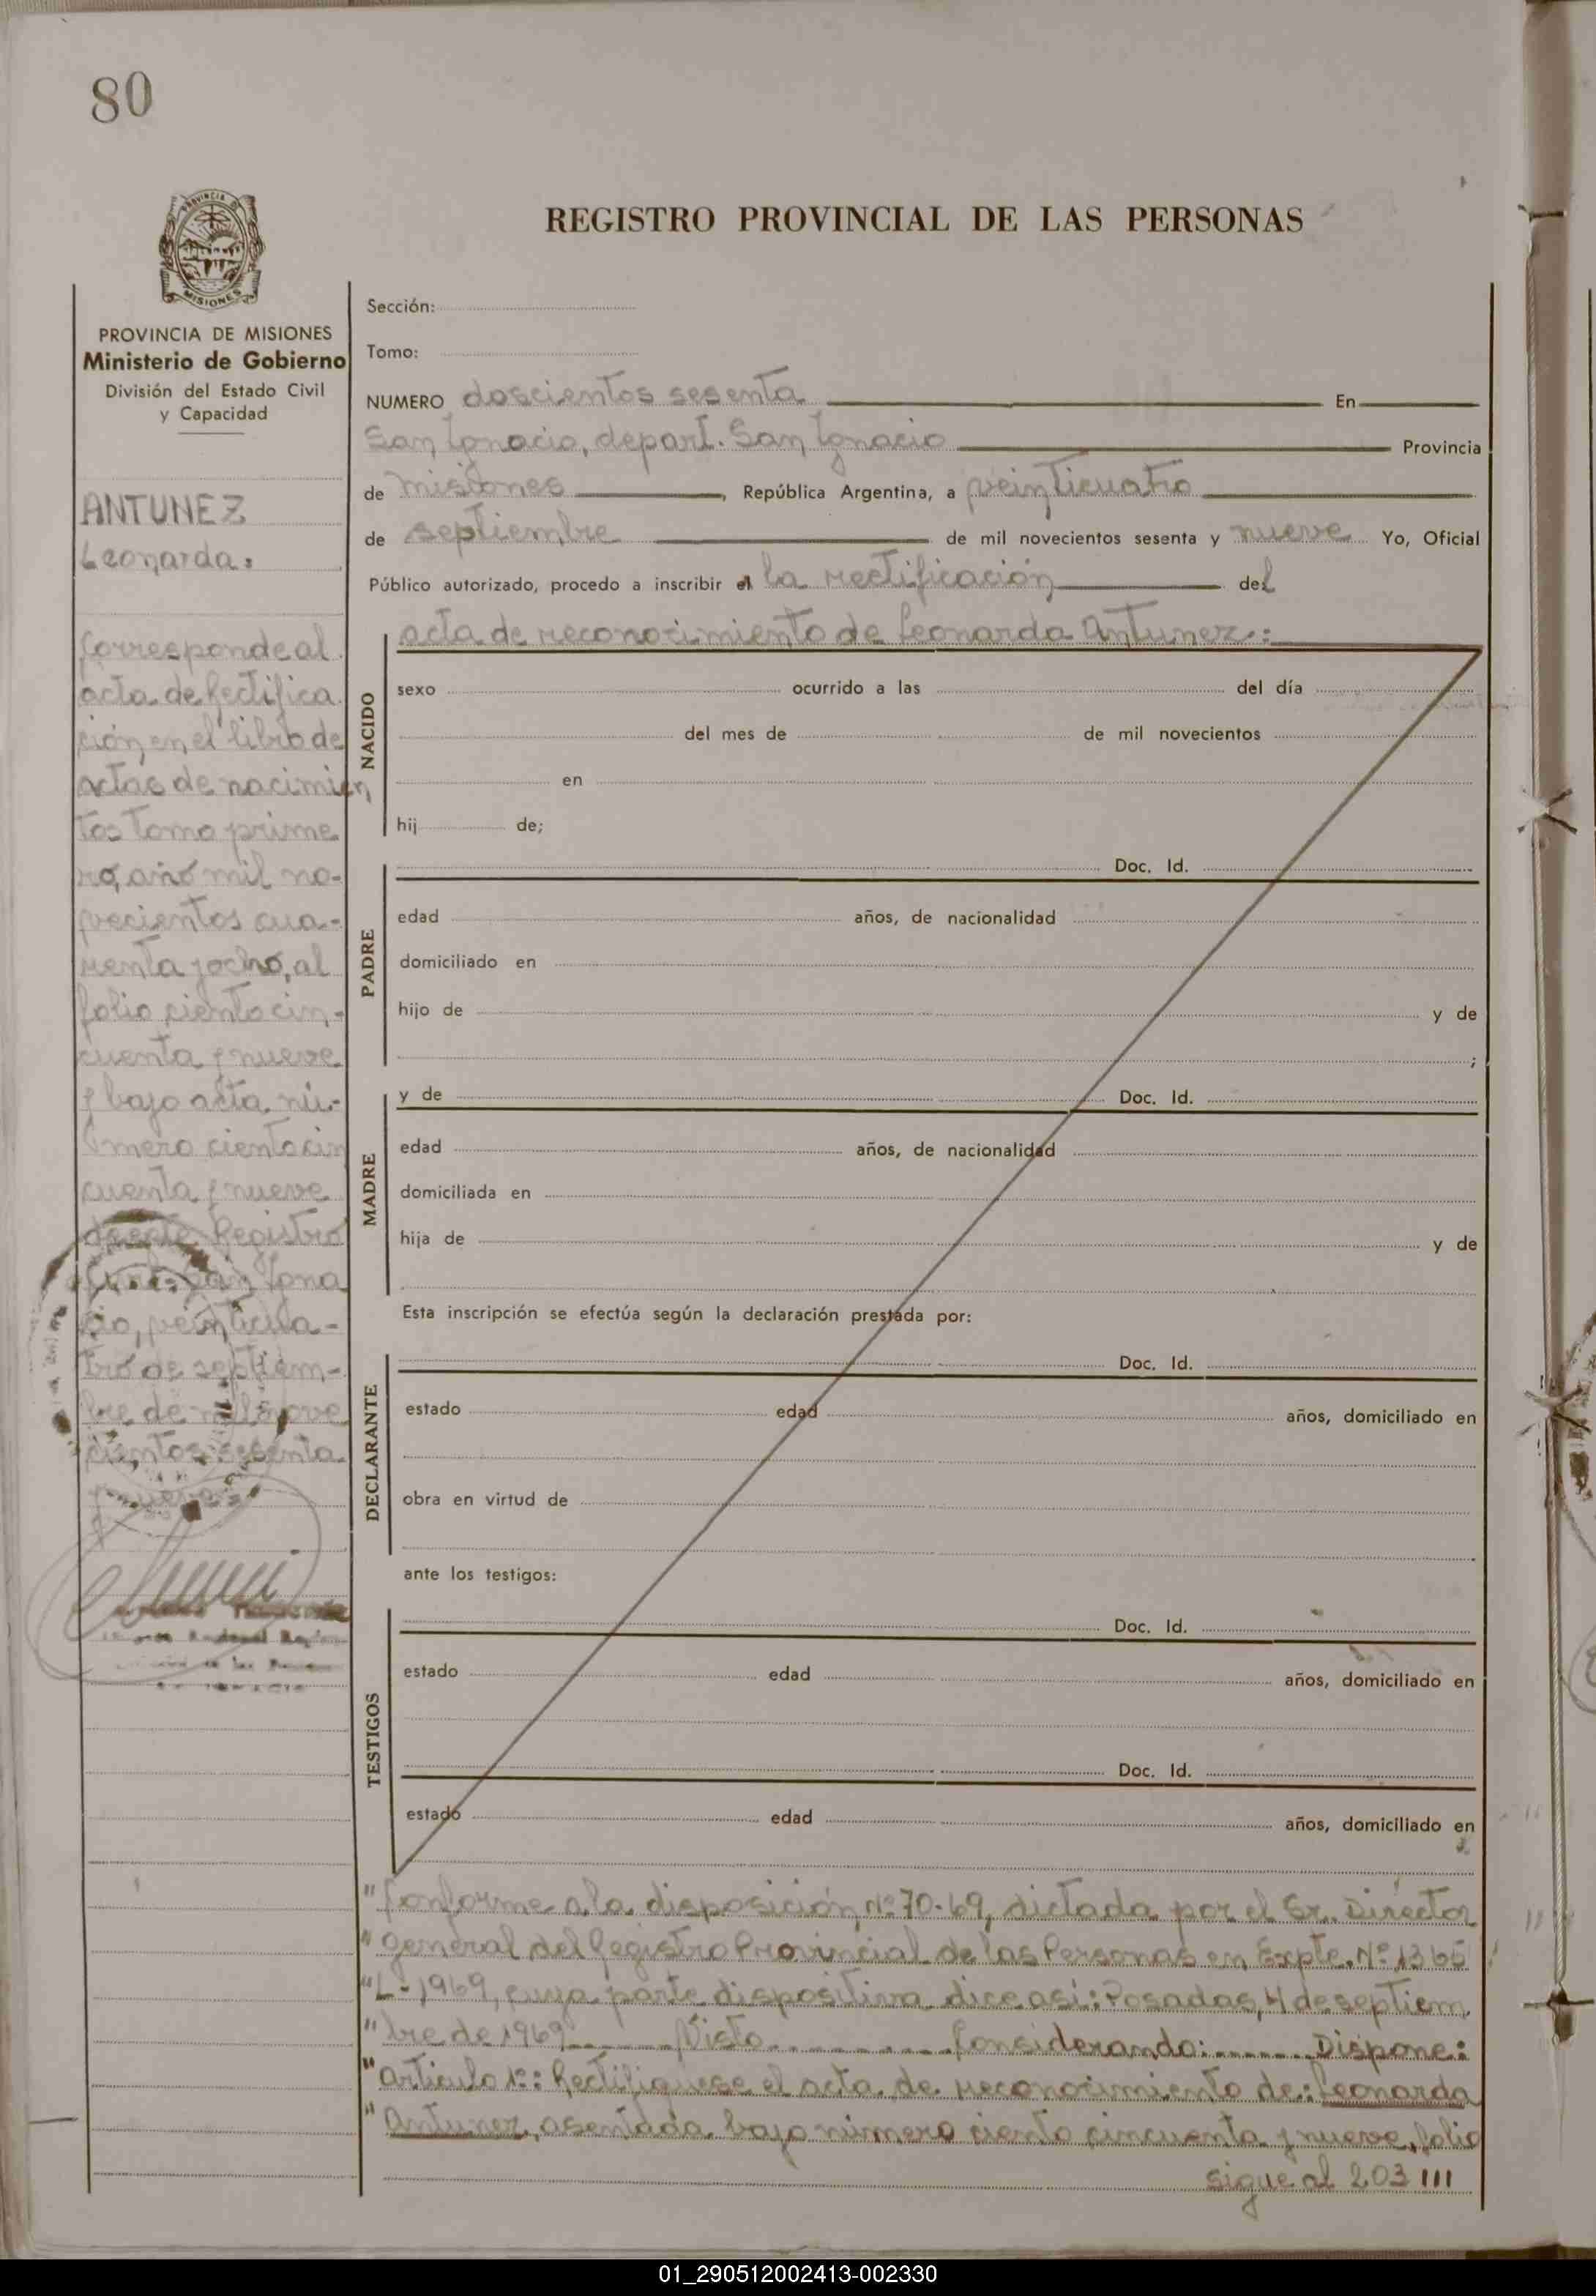 80
REGISTRO PROVINCIAL DE LAS PERSONAS
PROVINCIA DE MISIONES
Ministerio de Gobierno
División del Estado Civil
y Capacidad
ANTUNEZ
Leonarda:
Corresponde al
acta de Rectifica
ción en el libro de
actas de nacimien
tos tomo prime
ro, año mil no-
vecientos cua-
renta y ocho, al
folio ciento cin-
cuenta y nueve
y bajo acta nú-
mero ciento cin
cuenta y nueve
de este Registro
San Igna
cio, veinticua-
tro de septiem-
bre de mil nove
cientos sesenta
y nueve
Sección:
Tomo:
NUMERO doscientos sesenta En
San Ignacio, depart. San Ignacio Provincia
de Misiones, República Argentina, a veinticuatro
de septiembre de mil novecientos sesenta y nueve Yo, Oficial
Público autorizado, procedo a inscribir el la rectificación del
acta de reconocimiento de Leonarda Antunez.:
NACIDO
sexo ocurrido a las del día
del mes de de mil novecientos
en
hij de;
PADRE
Doc. Id.
edad años, de nacionalidad
domiciliado en
hijo de y de
;
MADRE
y de Doc. Id.
edad años, de nacionalidad
domiciliada en
hija de y de
Esta inscripción se efectúa según la declaración prestada por:
DECLARANTE
Doc. Id.
estado edad años, domiciliado en
obra en virtud de
ante los testigos:
TESTIGOS
Doc. Id.
estado edad años, domiciliado en
Doc. Id.
estado edad años, domiciliado en
"Conforme a la disposición Nº 70-69, dictada por el Sr. Director
"general del Registro Provincial de las Personas en Expte. Nº 1365
"L-1969, cuya parte dispositiva dice así: Posadas, 4 de septiem
"bre de 1969 Visto Considerando: Dispone:
"Artículo 1º: Rectifiquese el acta de reconocimiento de: Leonarda
"Antunez, asentada bajo número ciento cincuenta y nueve, folio
sigue al 203 III
01_290512002413-002330